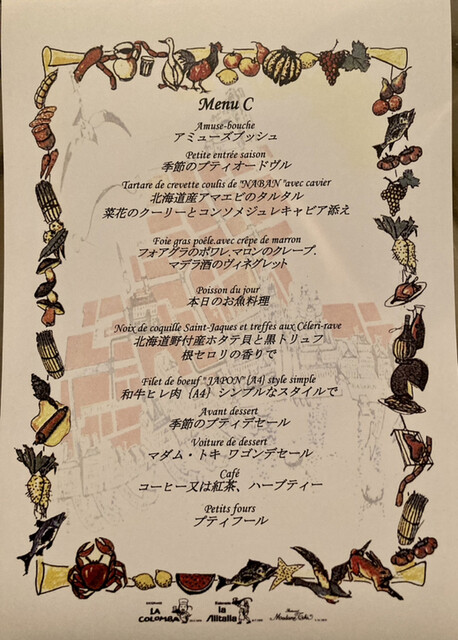 Menu C
Amuse-bouche
アミューズブッシュ
Petite entrée saison
季節のプティオードヴル
Tartare de crevette coulis de "NABAN "avec cavier
北海道産アマエビのタルタル
菜花のクーリーとコンソメジュレキャビア添え
Foie gras poêle.avec crêpe de marron
フォアグラのポワレ.マロンのクレープ.
マデラ酒のヴィネグレット
Poisson du jour
本日のお魚料理
Noix de coquille Saint-Jaques et treffes aux Céleri-rave
北海道野付産ホタテ貝と黒トリュフ
根セロリの香りで
Filet de boeuf " JAPON" (A4) style simple
和牛ヒレ肉 (A4) シンプルなスタイルで
Avant dessert
季節のプティデセール
Voiture de dessert
マダム・トキ ワゴンデセール
Café
コーヒー又は紅茶、ハーブティー
Petits fours
プティフール
LA COLOMBA
la Alitalia
Madame Toki